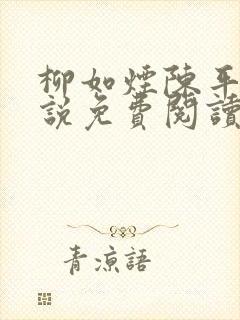 柳如煙陳平
說免費閱讀
青涼語